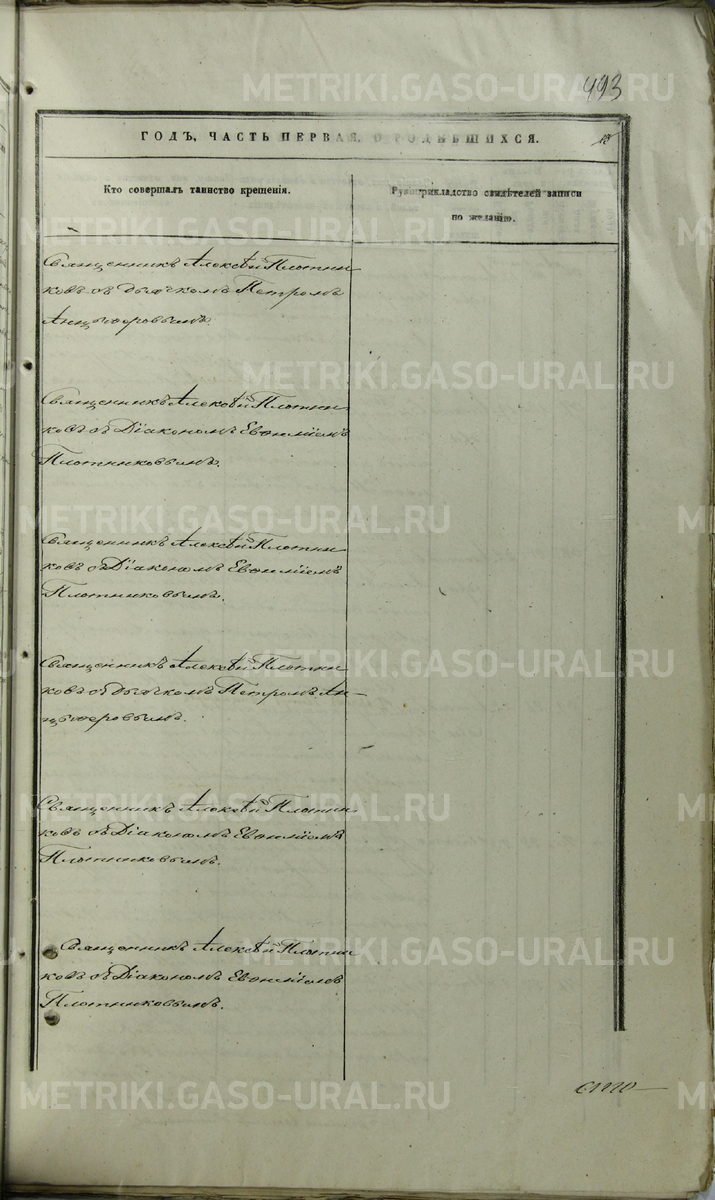 493
ГОДЪ, ЧАСТЬ ПЕРВАЯ, О РОДИВШИХСЯ.
Кто совершалъ таинство крещенія.
Рукоприкладство свидѣтелей записи
по желанію.
Священникъ Алексѣй Плотни
ковъ съ дьячкомъ Петромъ
Анцыферовымъ.
Священникъ Алексѣй Плотни
ковъ съ Діакономъ Евѳиміемъ
Плотниковымъ.
Священникъ Алексѣй Плотни
ковъ съ Діакономъ Евѳиміемъ
Плотниковымъ.
Священникъ Алексѣй Плотни
ковъ съ дьячкомъ Петромъ Ан-
цыферовымъ.
Священникъ Алексѣй Плотни
ковъ съ Діакономъ Евѳиміемъ
Плотниковымъ.
Священникъ Алексѣй Плотни
ковъ съ Діакономъ Евѳиміемъ
Плотниковымъ.
METRIKI.GASO-URAL.RU